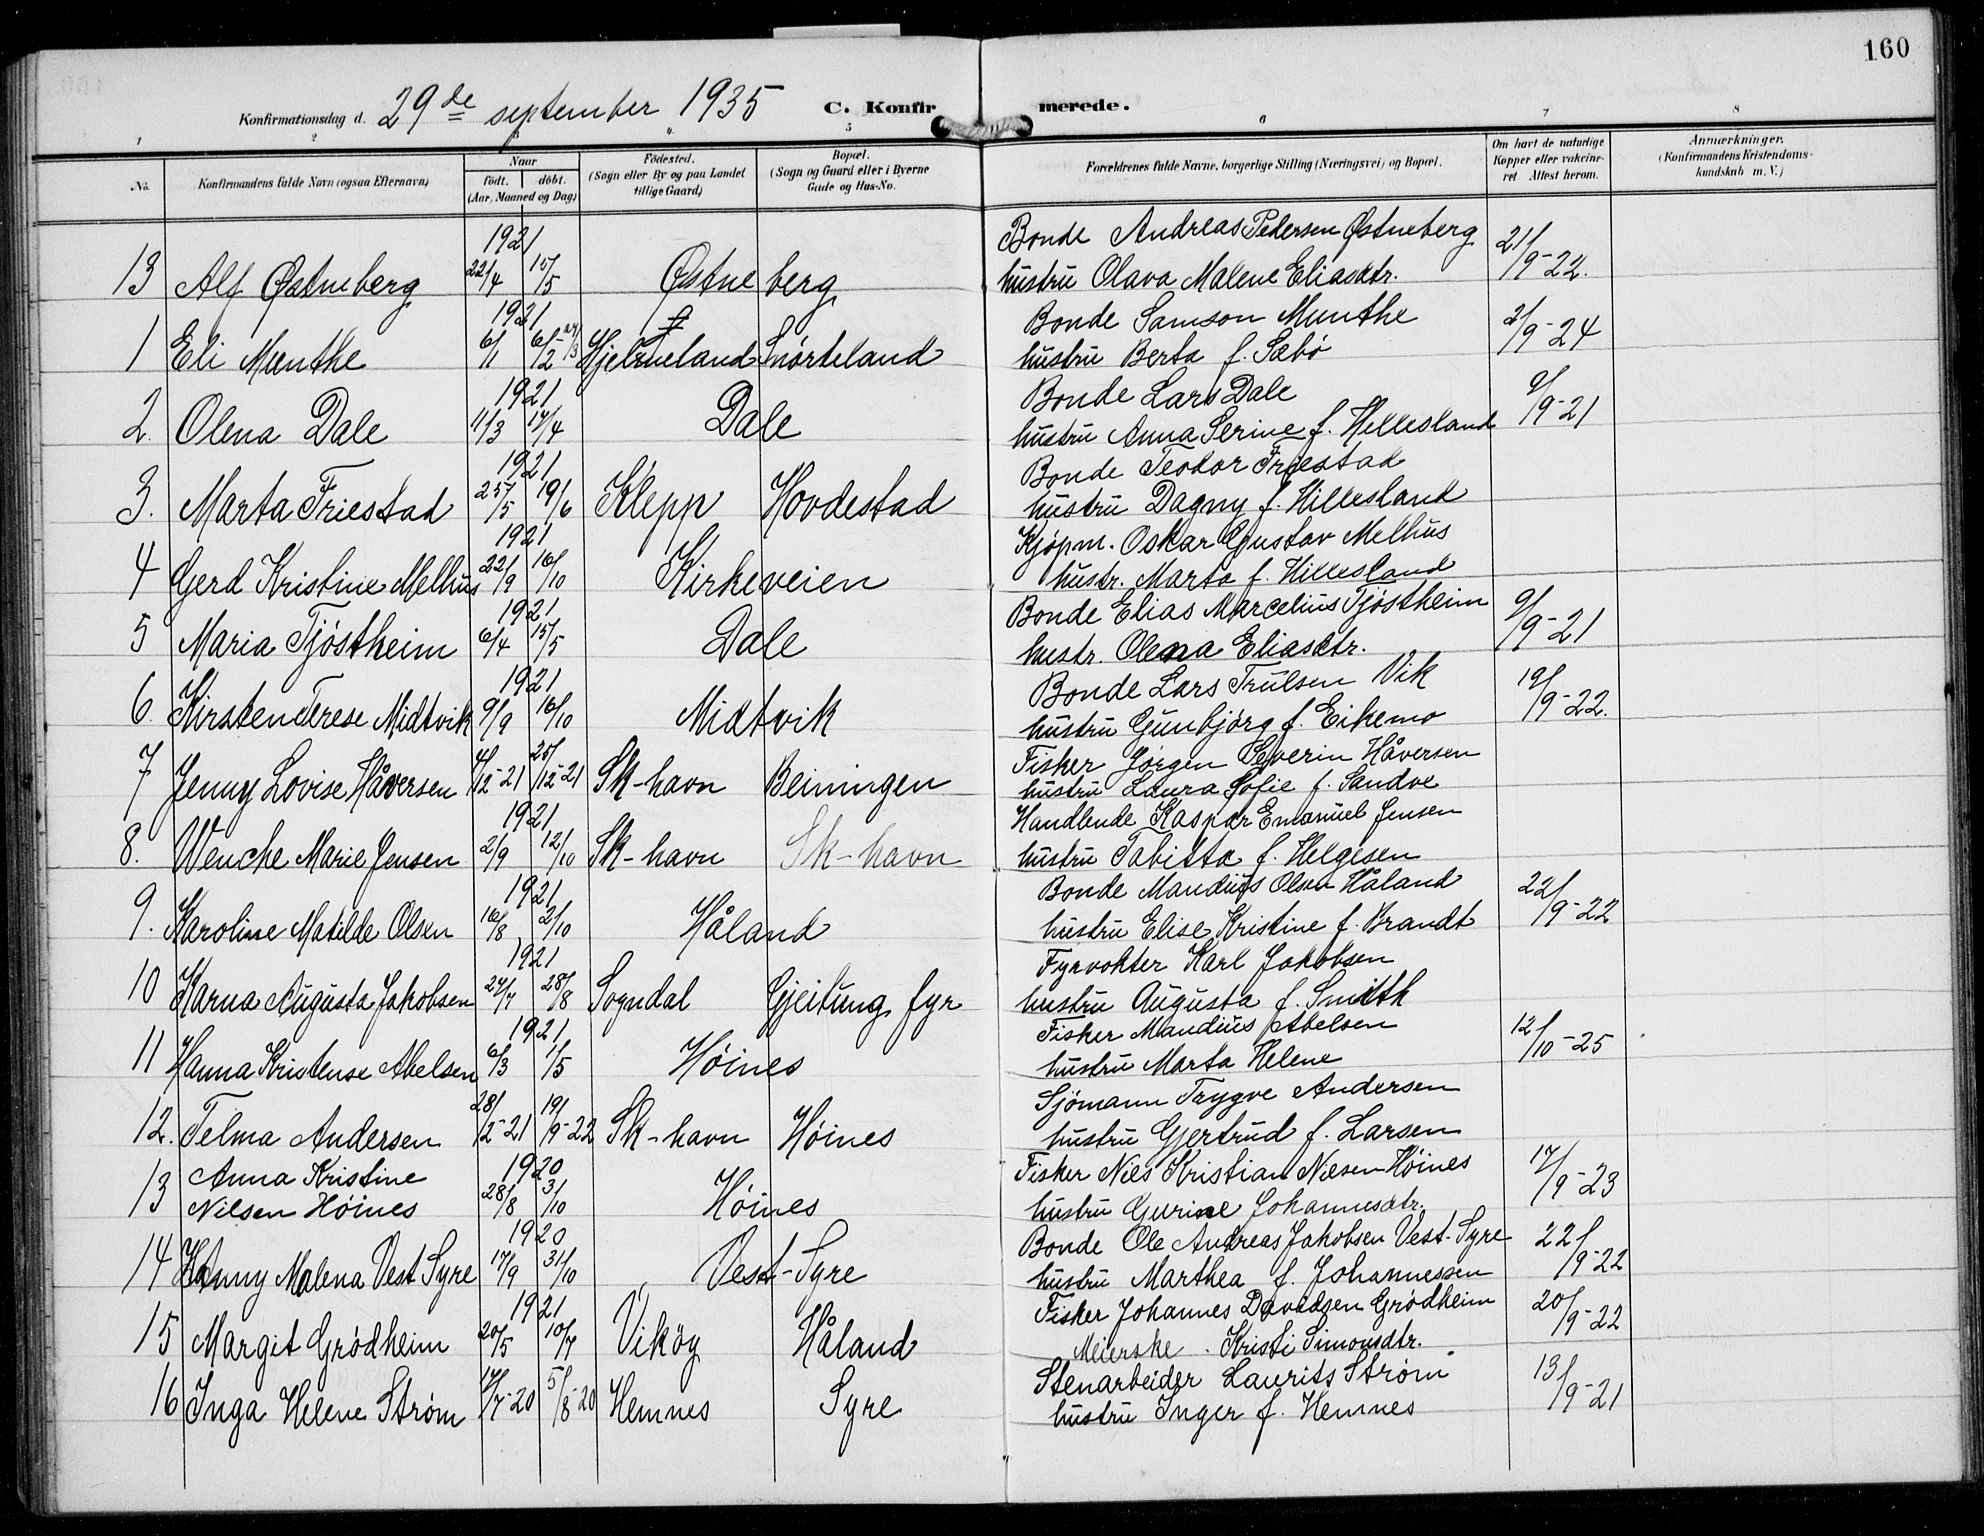 160
Konfirmationsdag d. 29de september 1935 C. Konfirmerede.
1 2 3 4 5 6 7 8
No. Konfirmandens fulde Navn (ogsaa Efternavn) Naar født. døbt. (Aar, Maaned og Dag) Fødested. (Sogn eller By og paa Landet tillige Gaard) Bopæl. (Sogn og Gaard eller i Byerne Gade og Hus-No. Forældrenes fulde Navne, borgerlige Stilling (Næringsvei) og Bopæl. Om havt de naturlige Kopper eller vakcineret. Attest herom. Anmærkninger. (Konfirmandens Kristendomskundskab m. V.)
1921 Bonde Andreas Pedersen Østneberg
13 Alf Østneberg 22/4 15/5 Østneberg hustru Olava Malene Eliasdtr. 21/9-22.
1921 Bonde Samson Munthe
1 Eli Munthe 6/1 6/2 Hjelmeland Snørteland hustru Berta f. Sæbö 2/9-24
1921 Bonde Lars Dale
2. Olena Dale 11/3 17/4 Dale hustru Anna Serine f. Hillesland 9/9-21
1921 Bonde Teodor Friestad
3. Marta Friestad 25/5 19/6 Klepp Hovdestad hustru Dagny f. Hillesland
1921 Kjöpm. Oskar Gustav Melhus
4 Gerd Kristine Melhus 22/9 16/10 Kirkeveien hustr. Marta f. Hillesland
1921 Bonde Elias Marcelius Tjöstheim
5 Maria Tjöstheim 6/4 15/5 Dale hustr. Olena Eliasdtr. 9/9-21
1921 Bonde Lars Trulsen Vik
6. Kirsten Terese Midtvik 9/9 16/10 Midtvik hustru Gunbjörg f. Eikemo 19/9-22.
Fisker Jörgen Severin Håversen
7 Jenny Lovise Håversen 4/12-21 25/12-21 Sk-havn Beiningen hustru Laura Sofie f. Sandve
1921 Handlende Kaspar Emanuel Jensen
8. Wenche Marie Jensen 2/9 12/10 Sk-havn Sk-havn hustru Tabitta f. Helgesen
1921 Bonde Mandius Olsen Håland
9. Karoline Matilde Olsen 16/8 2/10 Håland hustru Elise Kristine f. Brandt 22/9-22
1921 Fyrvokter Karl Jakobsen
10 Karna Augusta Jakobsen 24/7 28/8 Sogndal Gjeitung fyr hustru Augusta f. Smith
1921 Fisker Mandius Abelsen
11 Hanna Kristense Abelsen 6/3 1/5 Höines hustru Marta Helene 12/10-25
Sjömann Trygve Andersen
12. Telma Andersen 28/2-21 19/9-22 Sk-havn Höines hustru Gjertrud f. Larsen
13 Anna Kristine 1920 Fisker Nils Kristian Nilsen Höines
Nilsen Höines 28/8 3/10 Höines hustru Gurine Johannesdtr. 17/9-23
1920 Bonde Ole Andreas Jakobsen Vest-Syre
14 Hanny Malena Vest Syre 17/9 31/10 Vest-Syre hustru Marthea f. Johannessen 22/9-22
1921 Fisker Johannes Davidsen Grödheim
15 Margit Grödheim 20/5 10/7 Viköy Håland Meierske. Kristi Simonsdtr. 20/9-22
Stenarbeider Laurits Ström
16 Inga Helene Strøm 17/7-20 5/8-20 Hemnes Syre hustru Inger f. Hemnes 13/9-21